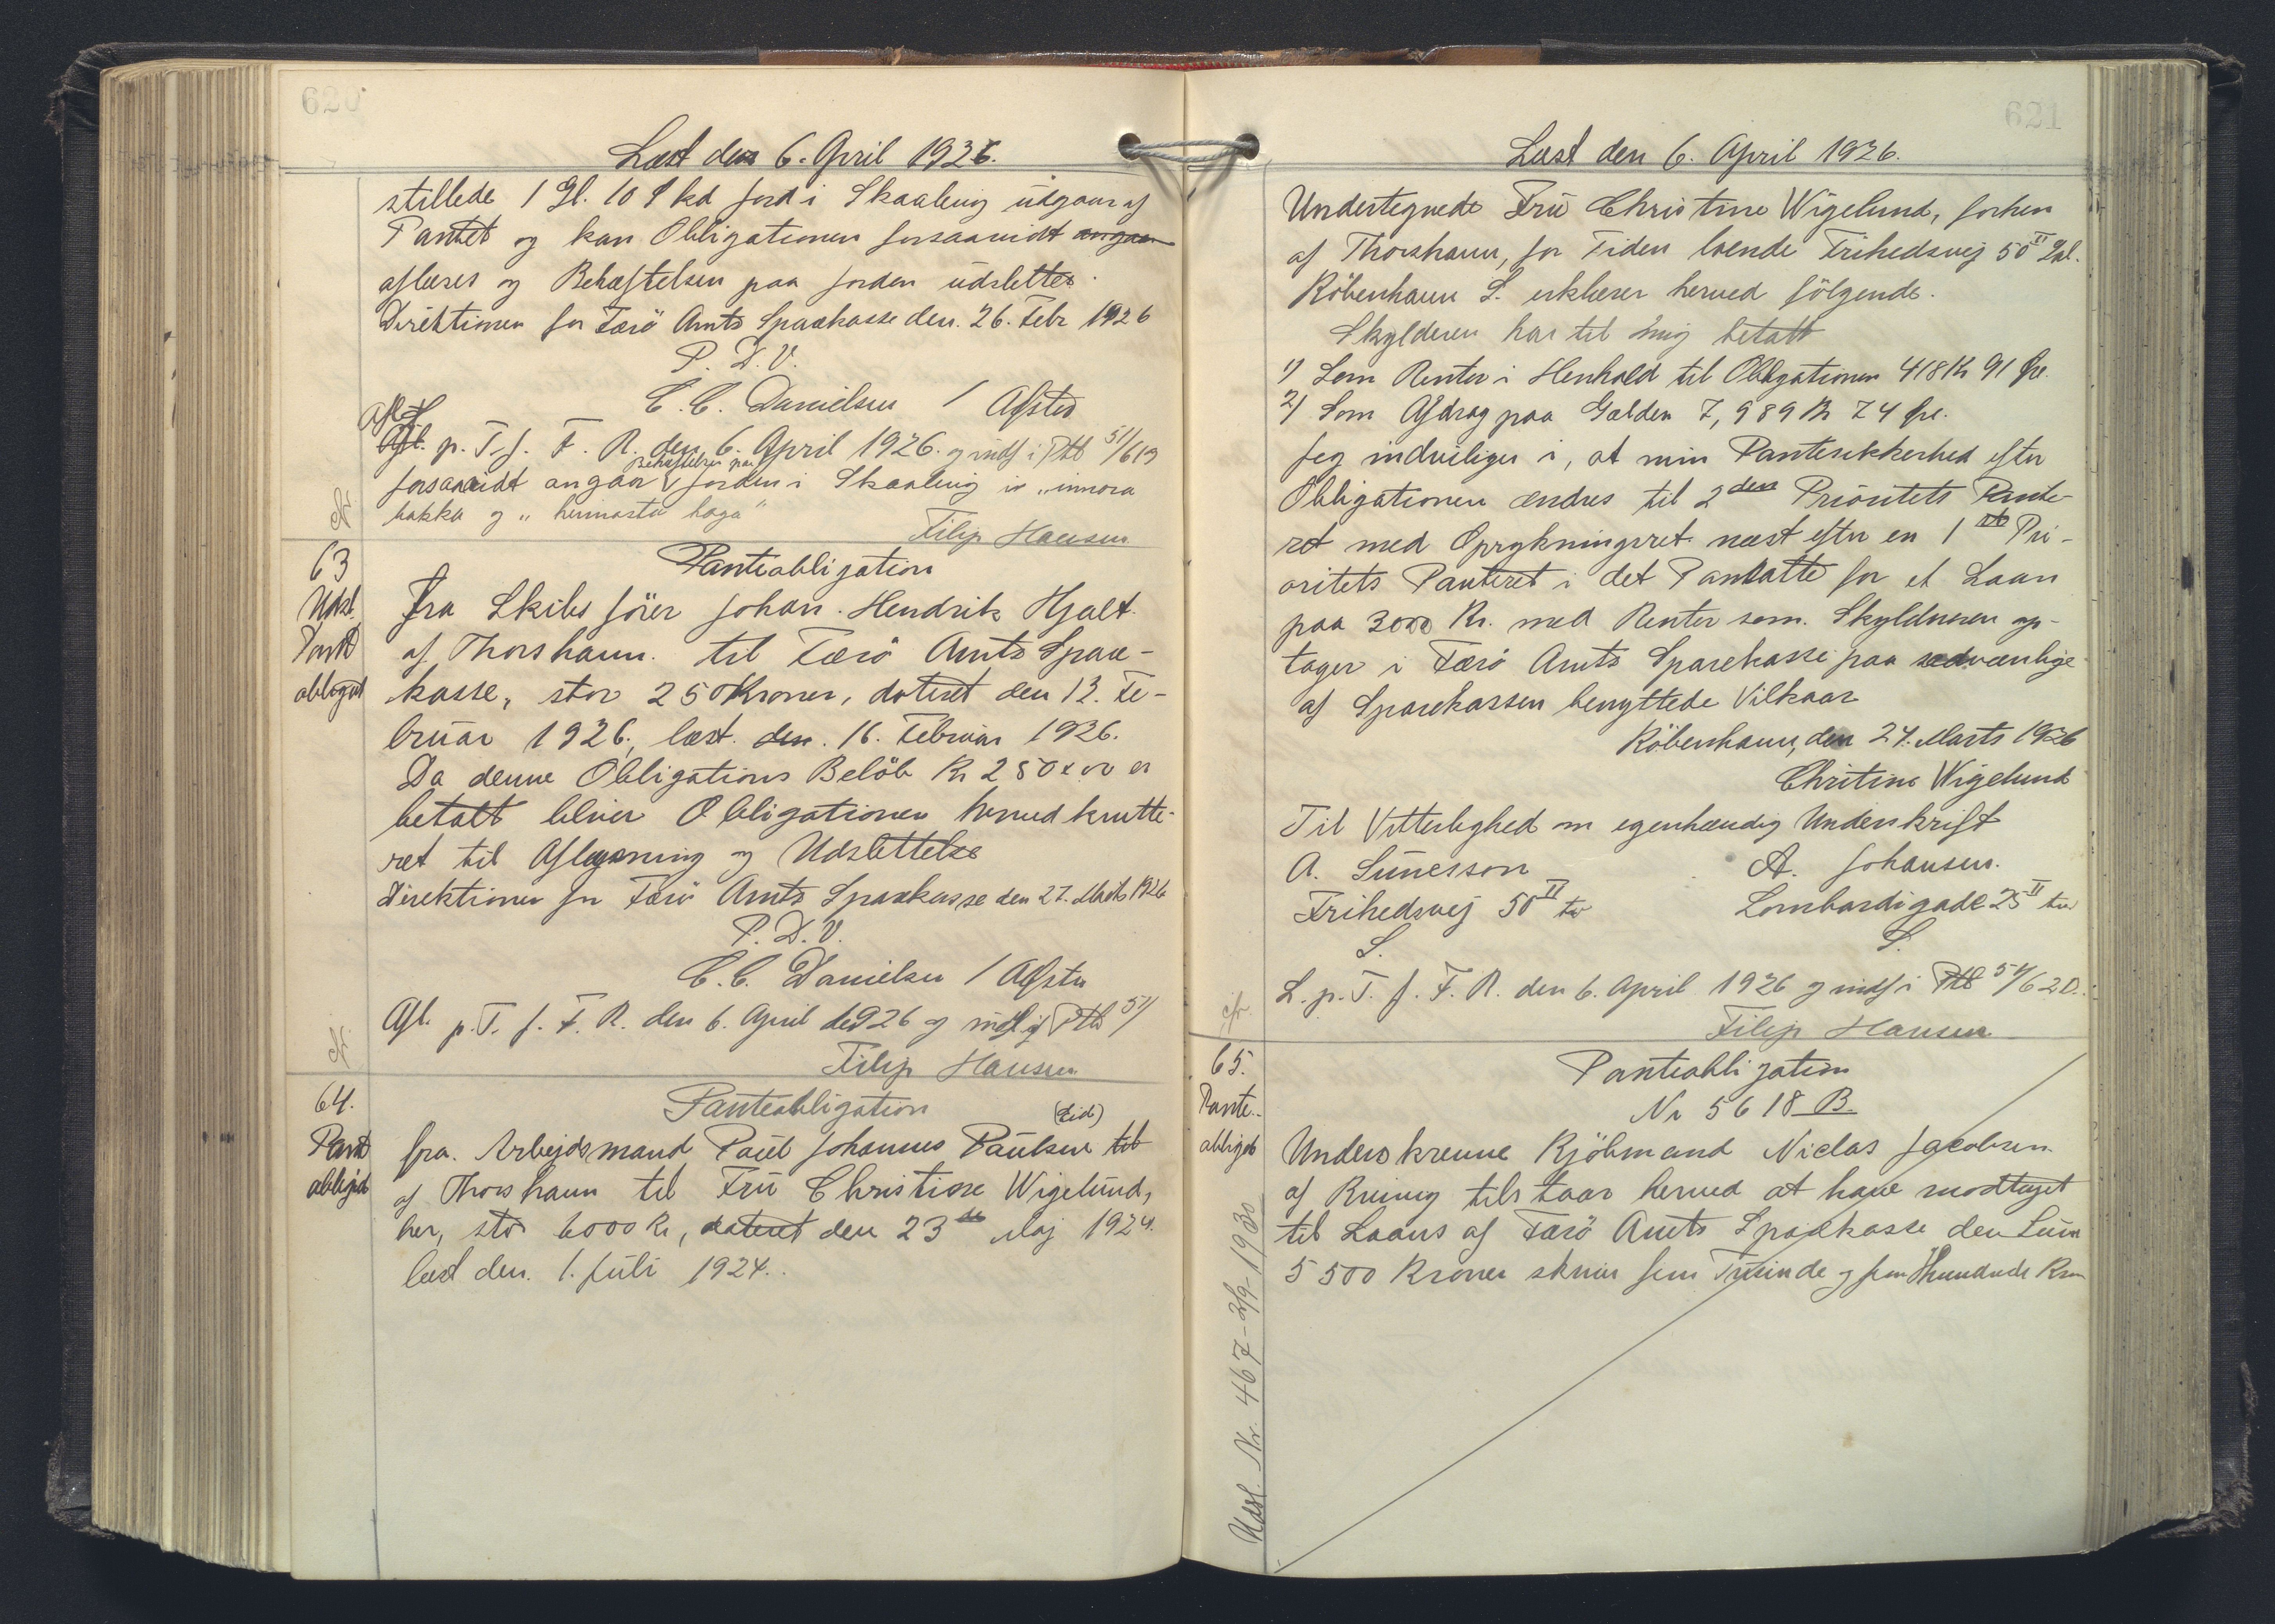 620
Læst den 6. April 1926.
stillede 1 Gl. 10 Skd Jord i Skaaleving udgaar af
Pantet og kan Obligationen forsaavidt angaar
aflæses og Behæftelsen paa Jorden udslettes.
Direktionen for Færö Amts Sparekasse den. 26. Febr 1926
P. D. V.
C. C. Danielsen / Afsted
Afl. p. T. f. F. R. den 6. April 1926. og indf i Ptb 51/619
Behæftelsen paa
forsaavidt angaar Jorden i Skaaleving i „innora
bakka og „heimasta haga"
cfr.
Filip Hansen
63
Udsl.
Pant
obligat
Panteobligation
Fra Skibsförer Johan. Hendrik Hjalt.
af Thorshavn. til Færö Amts Spare-
kasse, stor 250 Kroner, dateret den 13. Fe-
bruar 1926., læst. den. 16. Februar 1926.
Da denne Obligations Belöb Kr 250 x 00 er
betalt bliver Obligationen herved kvitte-
ret til Aflæsning og Udslettelse
Direktionen for Færö Amts Sparekasse den 27. Marts 1926
P. D. V.
C. C. Danielsen / Afstn
Afl. p. T. f. F. R. den 6. April 1926 og indf i Ptb 51/
cfr.
Filip Hansen
64.
Pant
obligat
Panteobligation
(Eid)
fra. Arbejdsmand Poul Johannes Paulsen til
af Thorshavn til Frü Christine Wigelund,
her, stor 6000 Kr, dateret den 23de Maj 1924.
læst den. 1. Juli 1924..
621
Læst den 6. April 1926.
Undertegnede Frü Christine Wigelund, forhen
af Thorshavn, for Tiden boende Frihedsvej 50 II Sal.
Köbenhavn S. erklærer herved fölgende.
Skylderen har til mig betalt
1) Som Renter i Henhold til Obligationen 418 Kr 91 Öre.
2) Som Afdrag paa Gælden 7,989 Kr 74 Öre.
Jeg indvilliger i, at min Pantesikkerhed efter
Obligationen ændres til 2den Prioritets Pante-
ret med Oprykningsret næst efter en 1ste Pri-
oritets Panteret i det Pantsatte for et Laan
paa 3000 Kr. med Renter som. Skyldneren op-
tager i Færö Amts Sparekasse paa sædvanlige
af Sparekassen benyttede Vilkaar
Köbenhavn, den 24. Marts 1926
Chritine Wigelund
Til Vitterlighed om egenhændig Underskrift
A. Sünesson A. Johansen.
Frihedsvej 50 II tv Lombardigade 25 II tv
S. S.
L. p. T. f. F. R. den 6. April 1926 og indf i Ptb 51/620.
cfr.
Filip Hansen
65.
Pante-
obligat
Panteobligation
Nr 5618 B.
Underskrevne Kjöbmand Niclas Jacobsen
af Rüning tilstaar herved at have modtaget
til Laans af Færö Amts Sparekasse den Sum
5500 Kroner skriver fem Tusinde og fem Hundrede Kron
Udsl. Nr. 467-2/9-1930